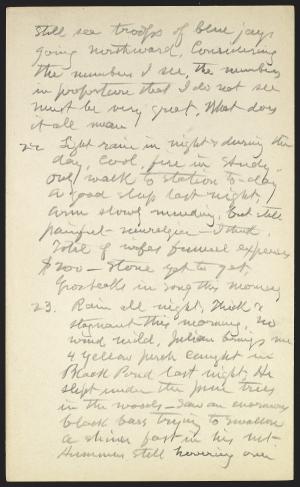 Still see troops of blue jays
going northward. Considering
the numbers I see, the numbers
in proportion that I do not see
must be very great. What does
it all mean
22 Light rain in night & during the
day, cool, fire in study,
only walk to station to-day
a good sleep last night,
arm slowly mending, but still
painful - neuralgia - I think.
Total of wifes funeral expenses
$200 - Stone yet to get,
Grosbeaks in song this morning
23. Rain all night, thick &
stagnant this morning, no
wind mild, Julian brings me
4 yellow perch caught in
Black Pond last night. He
slept under the pine trees
in the woods - Saw an enormous
black bass trying to swallow
a shiner fast in his net.
Hummer still hovering over